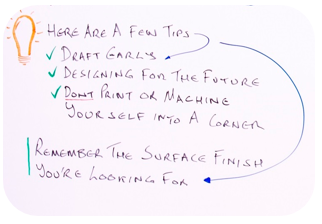 HERE ARE A FEW TIPS
DRAFT EARLY
DESIGNING FOR THE FUTURE
DON'T PRINT OR MACHINE
YOURSELF INTO A CORNER
REMEMBER THE SURFACE FINISH
YOU'RE LOOKING FOR